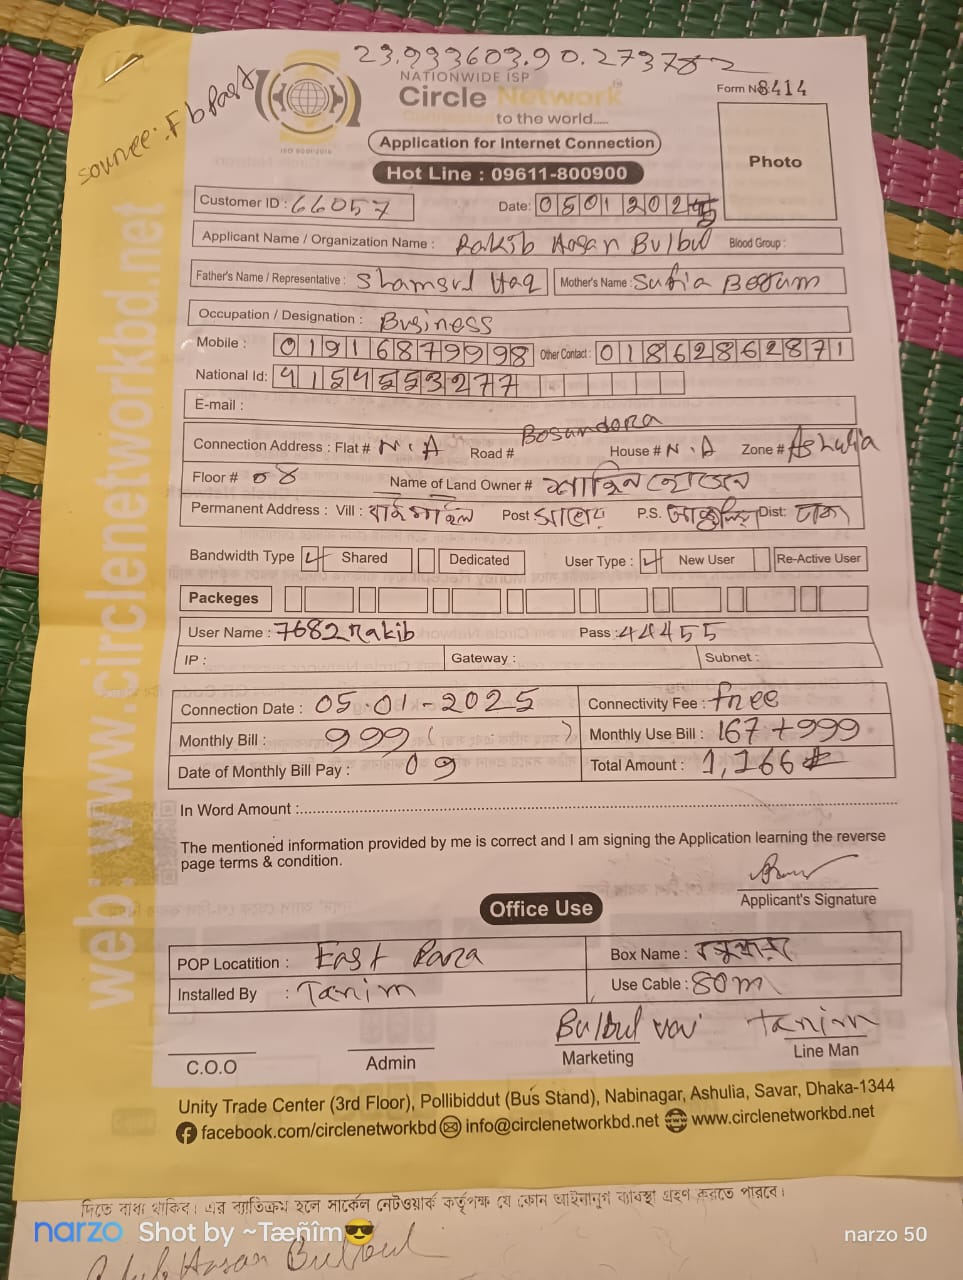 23.933603,90.273782
source: Fb Post
NATIONWIDE ISP
Circle Network
to the world.....
ISO 9001:2015
Form No 8414
Application for Internet Connection
Hot Line : 09611-800900
Photo
Customer ID : 66057
Date: 05012025
Applicant Name / Organization Name : Rakib Hasan Bulbul Blood Group :
Father's Name / Representative : Shamsul Haq Mother's Name : Sufia Begum
Occupation / Designation : Business
Mobile : 01916879998 Other Contact : 01862862871
National Id: 4154553277
E-mail :
Connection Address : Flat # N.A Road # Bosundora House # N.A Zone # Ashulia
Floor # 08 Name of Land Owner # শাহিন হোসেন
Permanent Address : Vill : Post P.S. আশুলিয়া Dist: ঢাকা
Bandwidth Type Shared Dedicated User Type : New User Re-Active User
Packeges
User Name : 7682Rakib Pass : 44455
IP : Gateway : Subnet :
Connection Date : 05-01-2025 Connectivity Fee : free
Monthly Bill : 999 ( ) Monthly Use Bill : 167+999
Date of Monthly Bill Pay : 09 Total Amount : 1,166
In Word Amount :
The mentioned information provided by me is correct and I am signing the Application learning the reverse
page terms & condition.
Applicant's Signature
Office Use
POP Locatition : East Para Box Name :
Installed By : Tanim Use Cable : 80m
Bulbul vai Tanim
C.O.O Admin Marketing Line Man
Unity Trade Center (3rd Floor), Pollibiddut (Bus Stand), Nabinagar, Ashulia, Savar, Dhaka-1344
facebook.com/circlenetworkbd info@circlenetworkbd.net www.circlenetworkbd.net
web: www.circlenetworkbd.net
দিতে বাধ্য থাকিব। এর ব্যতিক্রম হলে সার্কেল নেটওয়ার্ক কর্তৃপক্ষ যে কোন আইনানুগ ব্যবস্থা গ্রহণ করতে পারবে।
narzo Shot by ~Tæñîm😎 narzo 50
Hasan Bulbul